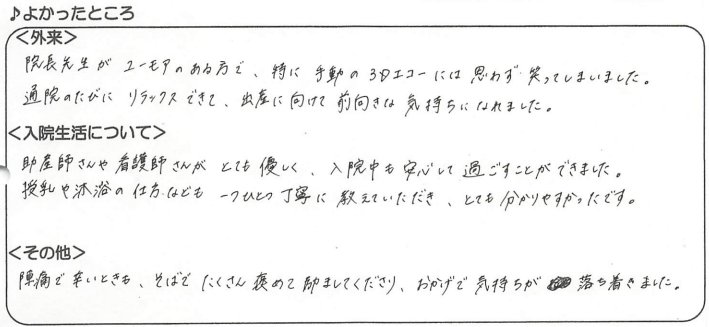 ♪よかったところ
<外来>
院長先生が ユーモアのある方で、特に 手動の 3Dエコーには 思わず 笑ってしまいました。
通院のたびに リラックスできて、出産に向けて 前向きな 気持ちに なれました。
<入院生活について>
助産師さんや 看護師さんが とても 優しく、入院中も 安心して 過ごすことが できました。
授乳や沐浴の 仕方なども 一つひとつ 丁寧に 教えていただき、とても 分かりやすかったです。
<その他>
陣痛で 辛いときも、そばで たくさん 褒めて 励ましてくださり、おかげで 気持ちが 落ち着きました。